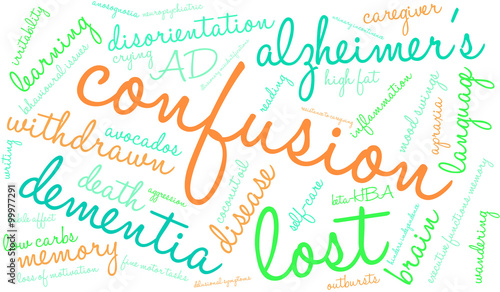 anosognosia
neuropsychiatric
caregiver
irritability
disorientation
learning
crying
alzheimer's
AD
high fat
behavioural issues
confusion
reading
inflammation
mood swings
language
apraxia
avocados
withdrawn
writing
death
aggression
coconut oil
disease
self-care
betaHBA
dementia
lost
brain
executive functions
memory
wandering
low carbs
memory
loss of motivation
fine motor tasks
outbursts
99977291
Adobe Stock